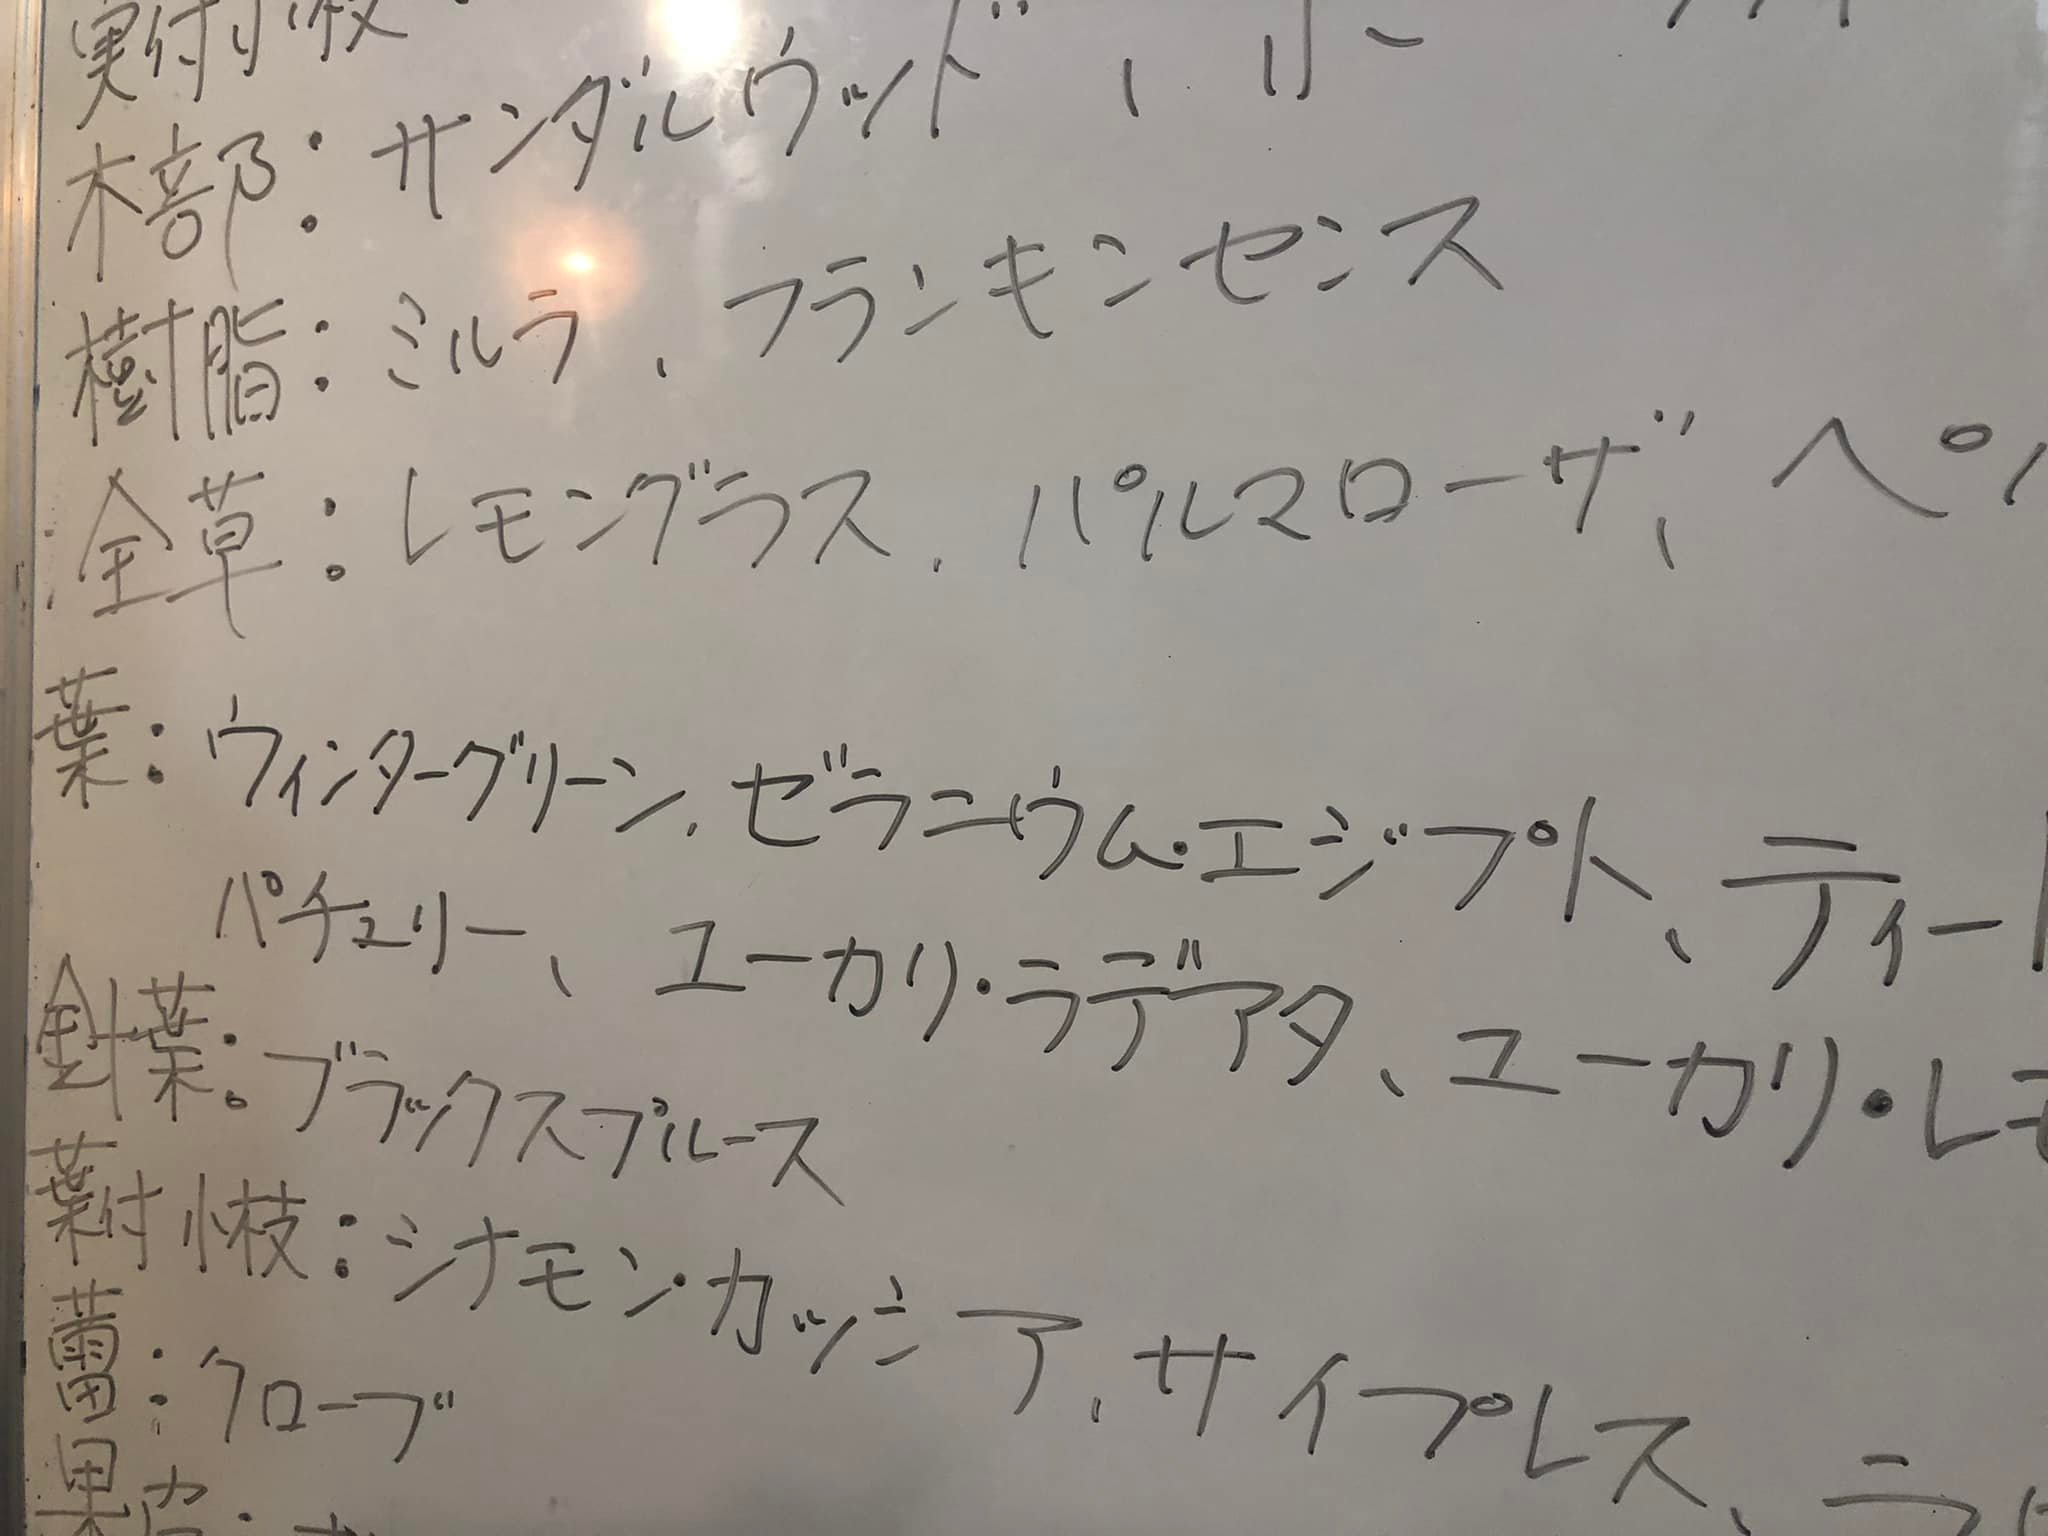 実付小枝:
木部:サンダルウッド、ホー
樹脂:ミルラ、フランキンセンス
全草:レモングラス、パルマローザ、ペ
葉:ウィンターグリーン、ゼラニウム・エジプト、ティー
パチュリー、ユーカリ・ラデアタ、ユーカリ・レモ
針葉:ブラックスプルース
葉付小枝:シナモン・カッシア、サイプレス、ラ
蕾:クローブ
果皮: